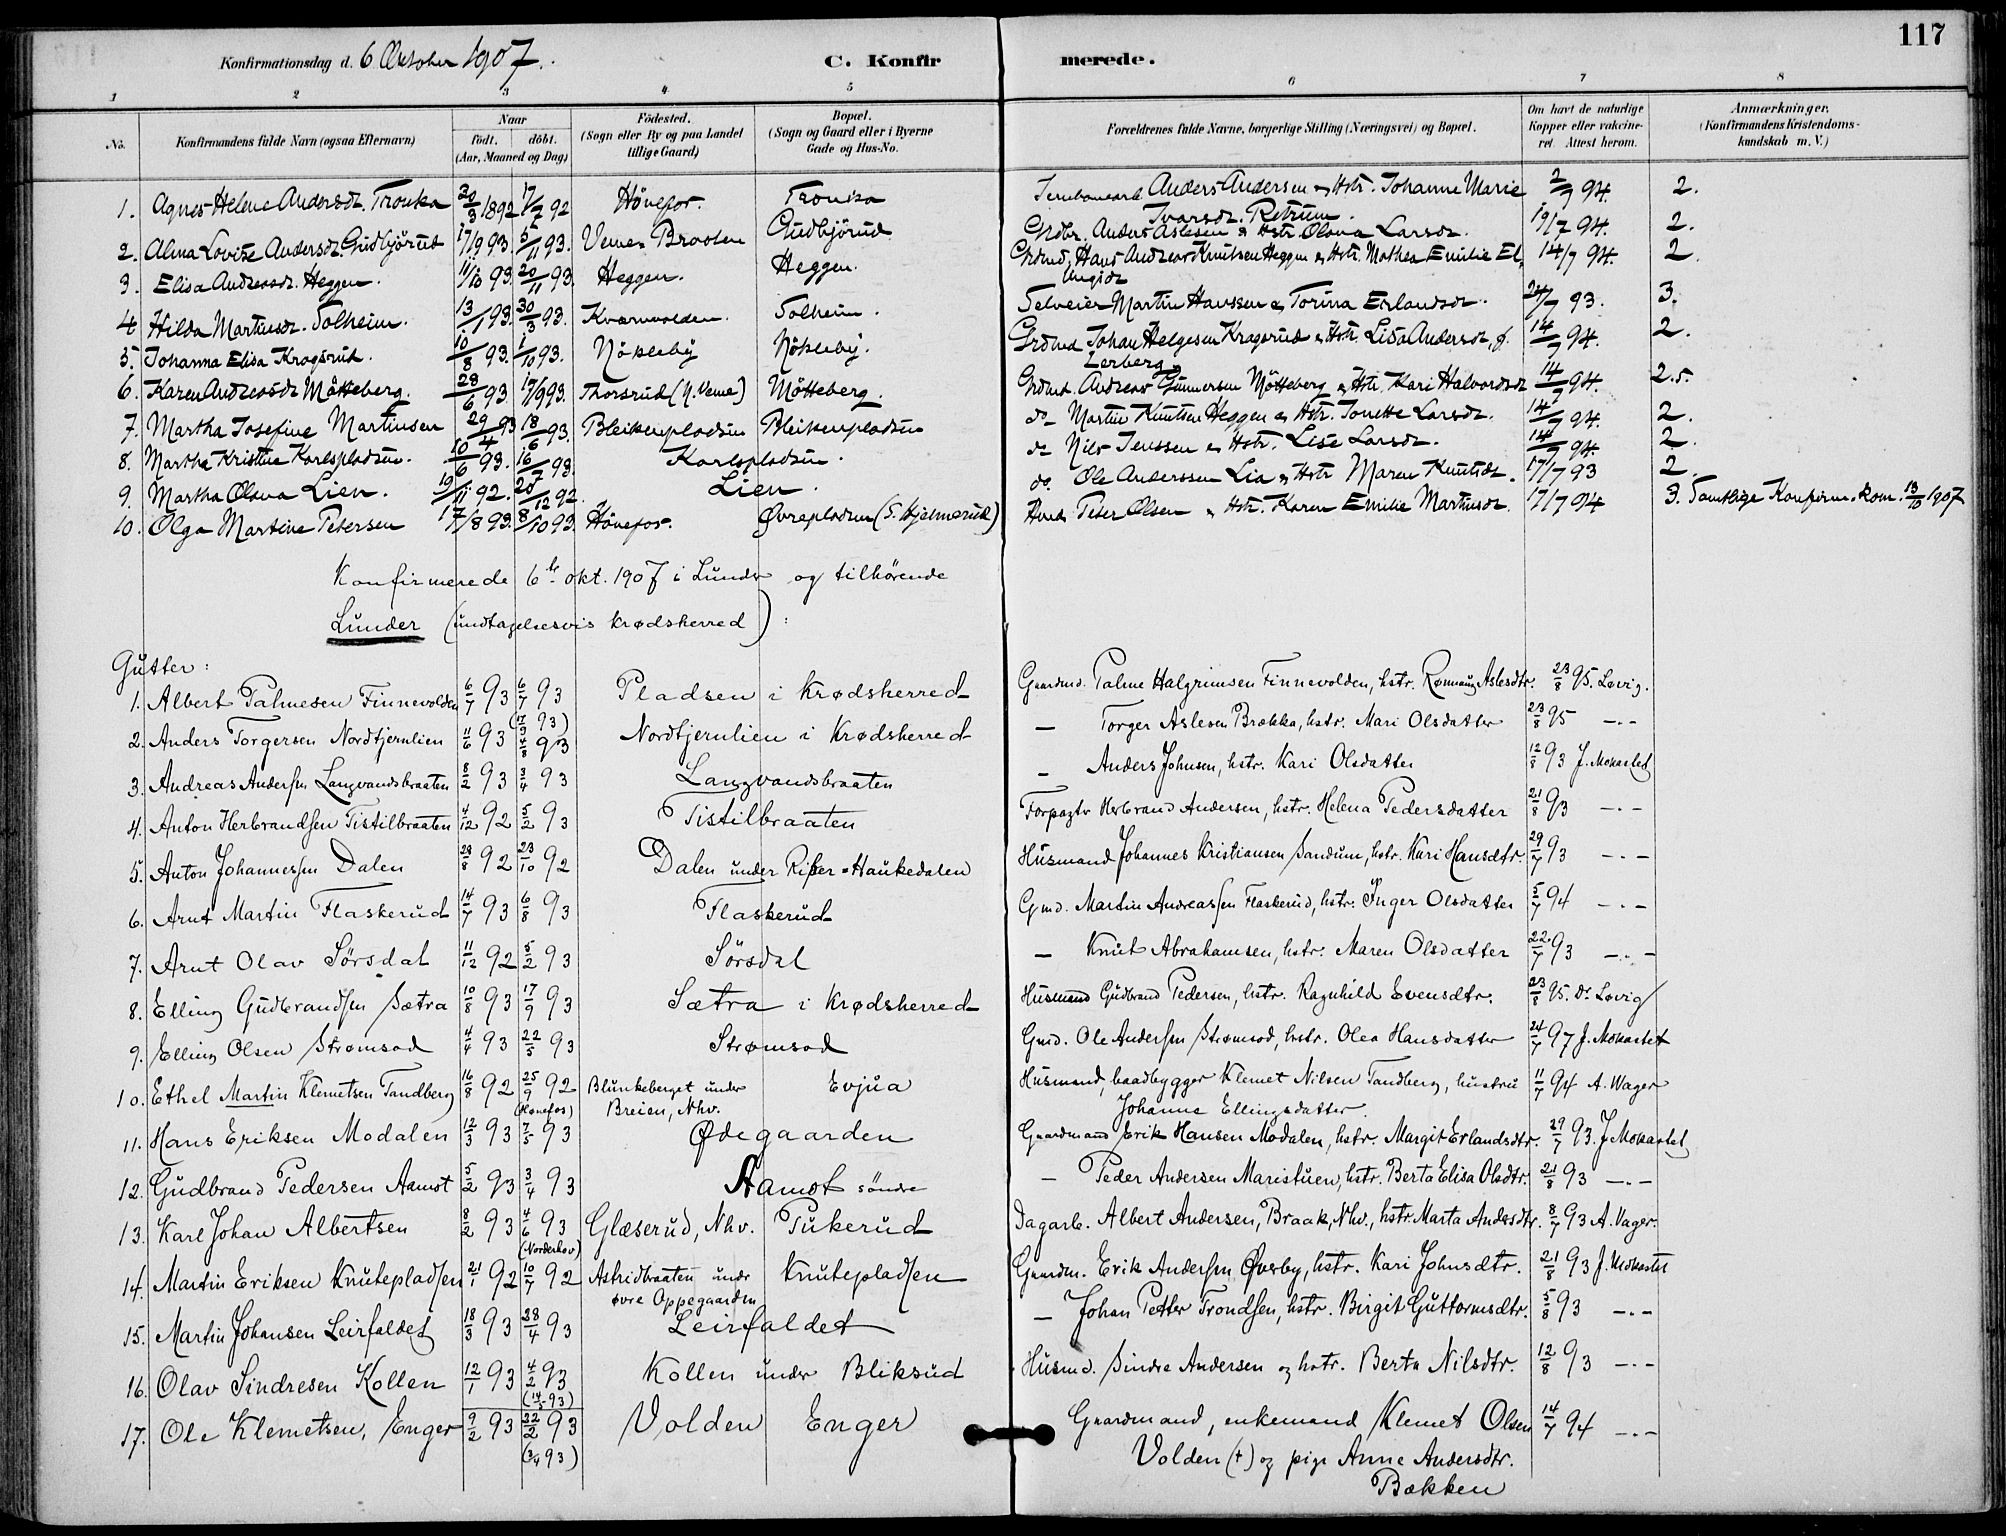 117
Konfirmationsdag d. 6 Oktober 1907.
C. Konfirmerede.
1 2 3 4 5 6 7 8
No. Konfirmandens fulde Navn (ogsaa Efternavn) Naar födt. döbt. (Aar, Maaned og Dag) Födested. (Sogn eller By og paa Landet tillige Gaard) Bopæl. (Sogn og Gaard eller i Byerne Gade og Hus-No. Forældrenes fulde Navne, borgerlige Stilling (Næringsvei) og Bopæl. Om havt de naturlige Kopper eller vakcineret. Attest herom. Anmærkninger. (Konfirmandens Kristendomskundskab m. V.)
1. Agnes Helene Andersdr. Tronka 20/3 1892 17/7 92 Hönefos. Tronka Anders Andersen & Hstr. Johanne Marie Ivarsdr. Retrum. 2/7 94. 2.
2. Alma Lovise Andersdr. Gudbjörud 17/9 93 5/11 93. Vemes Braaten Gudbjörud Grdbr. Anders Aslesen & Hstr. Olava Larsdr. 19/7 94. 2.
3. Elisa Andreasdr. Heggen. 11/10 93. 20/11 93 Heggen. Heggen. Grdmd. Hans Andreas Knutsen Heggen & Hstr. Mathea Emilie Ellingsdr 14/7 94. 2
4. Hilda Martinsdr. Solheim. 13/1 93. 30/3 93. Kvarnvolden. Solheim. Selveier Martin Hanssen & Torina Erlandsdr. 24/7 93. 3.
5. Johanna Elisa Kragsrud. 10/8 93. 1/10 93. Nökleby Nökleby. Grdmd Johan Helgesen Kragsrud & Hstr Lisa Andersdr. f. Lerberg 14/7 94. 2.
6. Karen Andreasdr Mötteberg. 28/6 93 17/9 93. Thorsrud (N. Veme) Mötteberg. Grdmd. Andreas Gunnersen Mötteberg & Hstr. Kari Halvordsdr 14/7 94. 2.5.
7. Martha Josefine Martinsen 29/4 93 18/6 93. Bleikenpladsen Bleikenpladsen do Martin Knutsen Heggen & Hstr. Jonette Larsdr. 14/7 94. 2.
8. Martha Kristine Karlspladsen. 10/6 93. 16/7 93. Karlspladsen. do Nils Jenssen & Hstr. Lise Larsdr. 14/7 94. 2.
9. Martha Olava Lien. 19/11 92. 20/12 92. Lien. do. Ole Anderssen Lia & Hstr Maren Knutsdr. 17/7 93 2.
10. Olga Martine Petersen 17/8 93. 8/10 93. Hönefos. Øvrepladsen (S. Hjelmerud) Peter Olsen & Hstr. Karen Emilie Martinsdr. 17/7 94 3. Samtlige Konfirm. kom. 13/10 1907
Konfirmerede 6te okt. 1907 i Lunder og tilhörende
Lunder (undtagelsesvis Krødsherred):
Gutter:
1. Albert Palmesen Finnevolden 6/7 93 6/7 93 Pladsen i Krødsherred Gaardmd. Palme Halgrimsen Finnevolden, hstr. Rønnaug Aslesdtr. 23/8 95. Lovig.
2. Anders Torgersen Nordtjernlien 11/6 93 (17/ 93) 4/8 93 Nordtjernlien i Krødsherred — Torger Aslesen Brækka, hstr. Mari Olsdatter 23/8 95 -.-
3. Andreas Andersen Langvandsbraaten 8/2 93 3/4 93 Langvandsbraaten — Anders Johnsen, hstr. Kari Olsdatter 12/8 93 J. Mokastet
4. Anton Herbrandsen Tistilbraaten 4/12 92 5/2 93 Tistilbraaten Forpagtr Herbrand Andersen, hstr. Helena Pedersdatter 21/8 93 -.-
5. Anton Johannessen Dalen 28/8 92 23/10 92 Dalen under Ripser-Haukedalen Husmand Johannes Kristiansen Sandum, hstr. Kari Hansdtr. 29/7 93 -.-
6. Arnt Martin Flaskerud 14/7 93 6/8 93 Flaskerud Gmd. Martin Andreassen Flaskerud, hstr. Inger Olsdatter 5/7 94 -.-
7. Arnt Olav Sörsdal 11/12 92 5/2 93 Sörsdal — Knut Abrahamsen, hstr. Maren Olsdatter 22/7 93 -.-
8. Elling Gudbrandsen Sætra 10/8 93 17/9 93 Sætra i Krødsherred Husmand Gudbrand Pedersen, hstr. Ragnhild Evensdtr. 23/8 95. Dr Lovig
9. Elling Olsen Strømsod 4/4 93 22/5 93 Strømsod Gmd. Ole Andersen Strømsod, hstr. Olea Hansdatter 24/7 97 J. Mokastet
10. Ethel Martin Klemetsen Tandberg 16/8 92 25/9 92 (Hønefos) Blunkeberget under Breien, Nhv. Evjua Husmand, baadbygger Klemet Nilsen Tandberg, hustru Johanne Ellingsdatter. 11/7 94 A. Wager
11. Hans Eriksen Modalen 12/3 93 7/5 93 Ødegaarden Gaardmand Erik Hansen Modalen, hstr. Margit Erlandsdtr. 29/7 93. J Mokastet
12. Gudbrand Pedersen Aamot 5/2 93 3/4 93 Aamot söndre — Peder Andersen Maristuen, hstr. Berta Elisa Olsdtr. 21/8 93 -.-
13. Karl Johan Albertsen 8/2 93 4/6 93 (Norderhov) Glæserud, Nhv. Tukerud Dagarb. Albert Andersen, Braak, Nhv., hstr. Marta Andersdtr. 8/7 93 A. Vager.
14. Martin Eriksen Knutepladsen 21/1 92 10/7 92 Astridbraaten under øvre Oppegaarden Knutepladsen Gaardm. Erik Andersen Øverby, hstr. Kari Johnsdtr. 21/8 93 J. Mokastet
15. Martin Johansen Leirfaldet 18/3 93 28/4 93 Leirfaldet — Johan Petter Trondsen, hstr. Birgit Guttormsdtr. 5/8 93 -.-
16. Olav Sindresen Kollen 12/1 93 4/2 93 (14/5 93) Kollen under Bliksud Husmd. Sindre Andersen og hstr. Berta Nilsdtr. 12/8 93 -.-
17. Ole Klemetsen, Enger 9/2 93 22/2 93 (3/4 93) Volden Enger Gaardmand, enkemand Klemet Olsen Volden (+) og pige Anne Andersdtr. Bækken 14/7 94 -.-